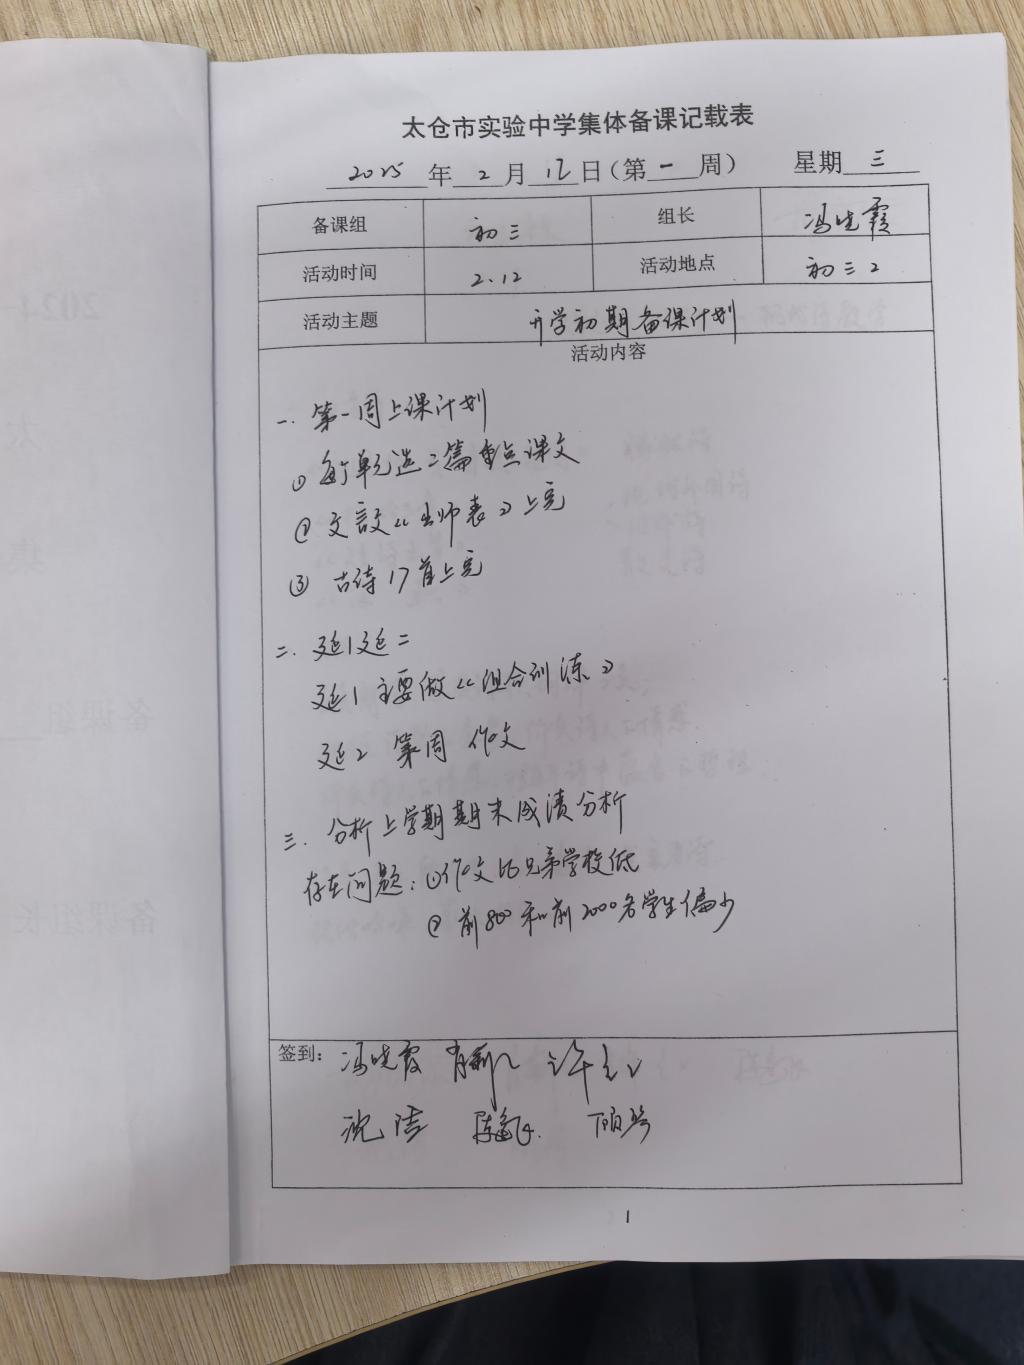 太仓市实验中学集体备课记载表
2025 年 2 月 12 日(第 一 周) 星期 三
备课组 初三 组长 冯晓霞
活动时间 2.12 活动地点 初三2
活动主题 开学初期备课计划
活动内容
一. 第一周上课计划
① 每个单元选二篇重点课文
② 文言文《出师表》上完
③ 古诗17首上完
二. 延1延二
延1 主要做《组合训练》
延2 第周 作文
三. 分析上学期期末成绩分析
存在问题: ①作文比兄弟学校低
② 前800和前2000名学生偏少
签到: 冯晓霞
沈洁
1